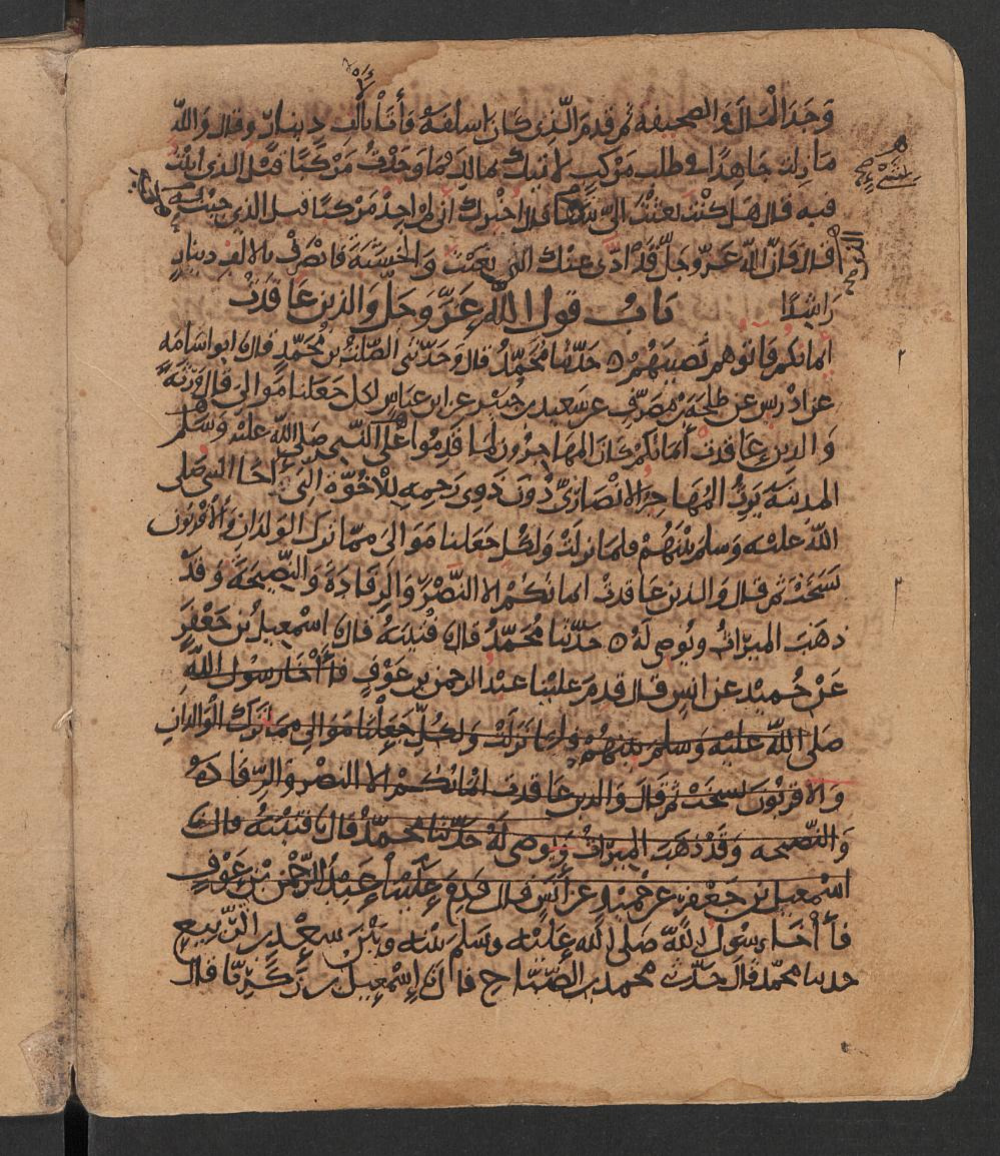 وَجَدَ الْمَالَ وَالصحيفة ثم قدم الَّذي كان اسلفهُ فأتا بالف دينارٍ وقال وَالله
مازلت جَاهدًا في طلب مَركب لاتيك بمالك فما وَجَدْتُ مَركبًا قبْل الذى اتيْتُ
فيه قال هَل كنْتَ بعثتْ الىّ قال اخبرك انى لم اجدْ مَركبًا قبل الذى جيْت
قال فانّ الله عَزّ وجلّ قد ادّى عنك الذى بعثت والخشبة فانصرفْ بالالفِ دينارٍ
رَاشِدًا بَابُ قول الله عَزّ وَجَلّ وَالذين عَاقدتْ
أيمانكم فاتوهم نَصيبَهُمْ ه حَدّثنا مُحَمّدٌ قال وَحَدّثنى الصّلتُ بن مُحَمّدٍ قال ابو اسَامَة
عن ادريس عن طلحة بن مصَرّفٍ عن سَعيد بن جبَيْر عن ابن عبَاسٍ لكل جَعَلنا مَوالى قال وَرَثَة
وَالذين عَاقدتْ أيمانكم كان المهاجرُون لما قدِمُوا عَلى النبى صَلى الله عليه وَسَلم
المدينة يَرثُ المُهَاجِرُ الانْصَارىَّ دُونَ ذَوى رَحِمِهِ لِلأخُوّة التى آخا النبى صَلى
الله عليه وَسَلم بيْنَهُمْ فلما نزلتْ وَلكُلّ جَعَلنا مَوَالىَ ممّا ترك الوَالِدَانِ وَالأقْرَبُون
نسَخَتْ ثم قال وَالذين عَاقدتْ ايمانكُمْ الا النّصْرَ وَالرفَادَةَ وَالنّصِيحَةَ وَقدْ
ذهَبَ الميرَاثُ وَيُوصِى لهُ ه حَدّثنا مُحَمّدٌ قال قتيْبَةُ قال اسْمعِيلُ بن جَعْفَرٍ
عَنْ حُميْدٍ عن انَسٍ قال قدمَ عليْنا عبْد الرحمن بن عَوْفٍ فأآخَا رسُول الله
صَلى الله عليْه وَسَلم بينهُمْ فلما نزلتْ وَلكُلّ جَعَلْنا مَوَالى مما ترَك الوَالدان
وَالاقربُون نسخَتْ ثم قال وَالذين عَاقدت ايْمَانُكُمْ الا النصْر وَالرّفادَة
وَالنّصيحه وَقدْ ذهَبَ الميرَاث وَيوصى لهُ حَدّثنا مُحمّدٌ قال قتيْبَة قال
اسْمعيل بن جَعْفرٍ عن حُميْدٍ عن أنَسٍ قال قَدِمَ عَلَيْنا عَبدُ الرّحْمن بن عَوْفٍ
فأآخَا رسُول الله صَلى الله عَليْه وسَلم بيْنه وبَيْن سعْد بن الرّبيع
حدثنا محمّد قال حَدّثنى محمد بن الصّبّاح قال إسْمعِيل بن زكَرِيّا قال